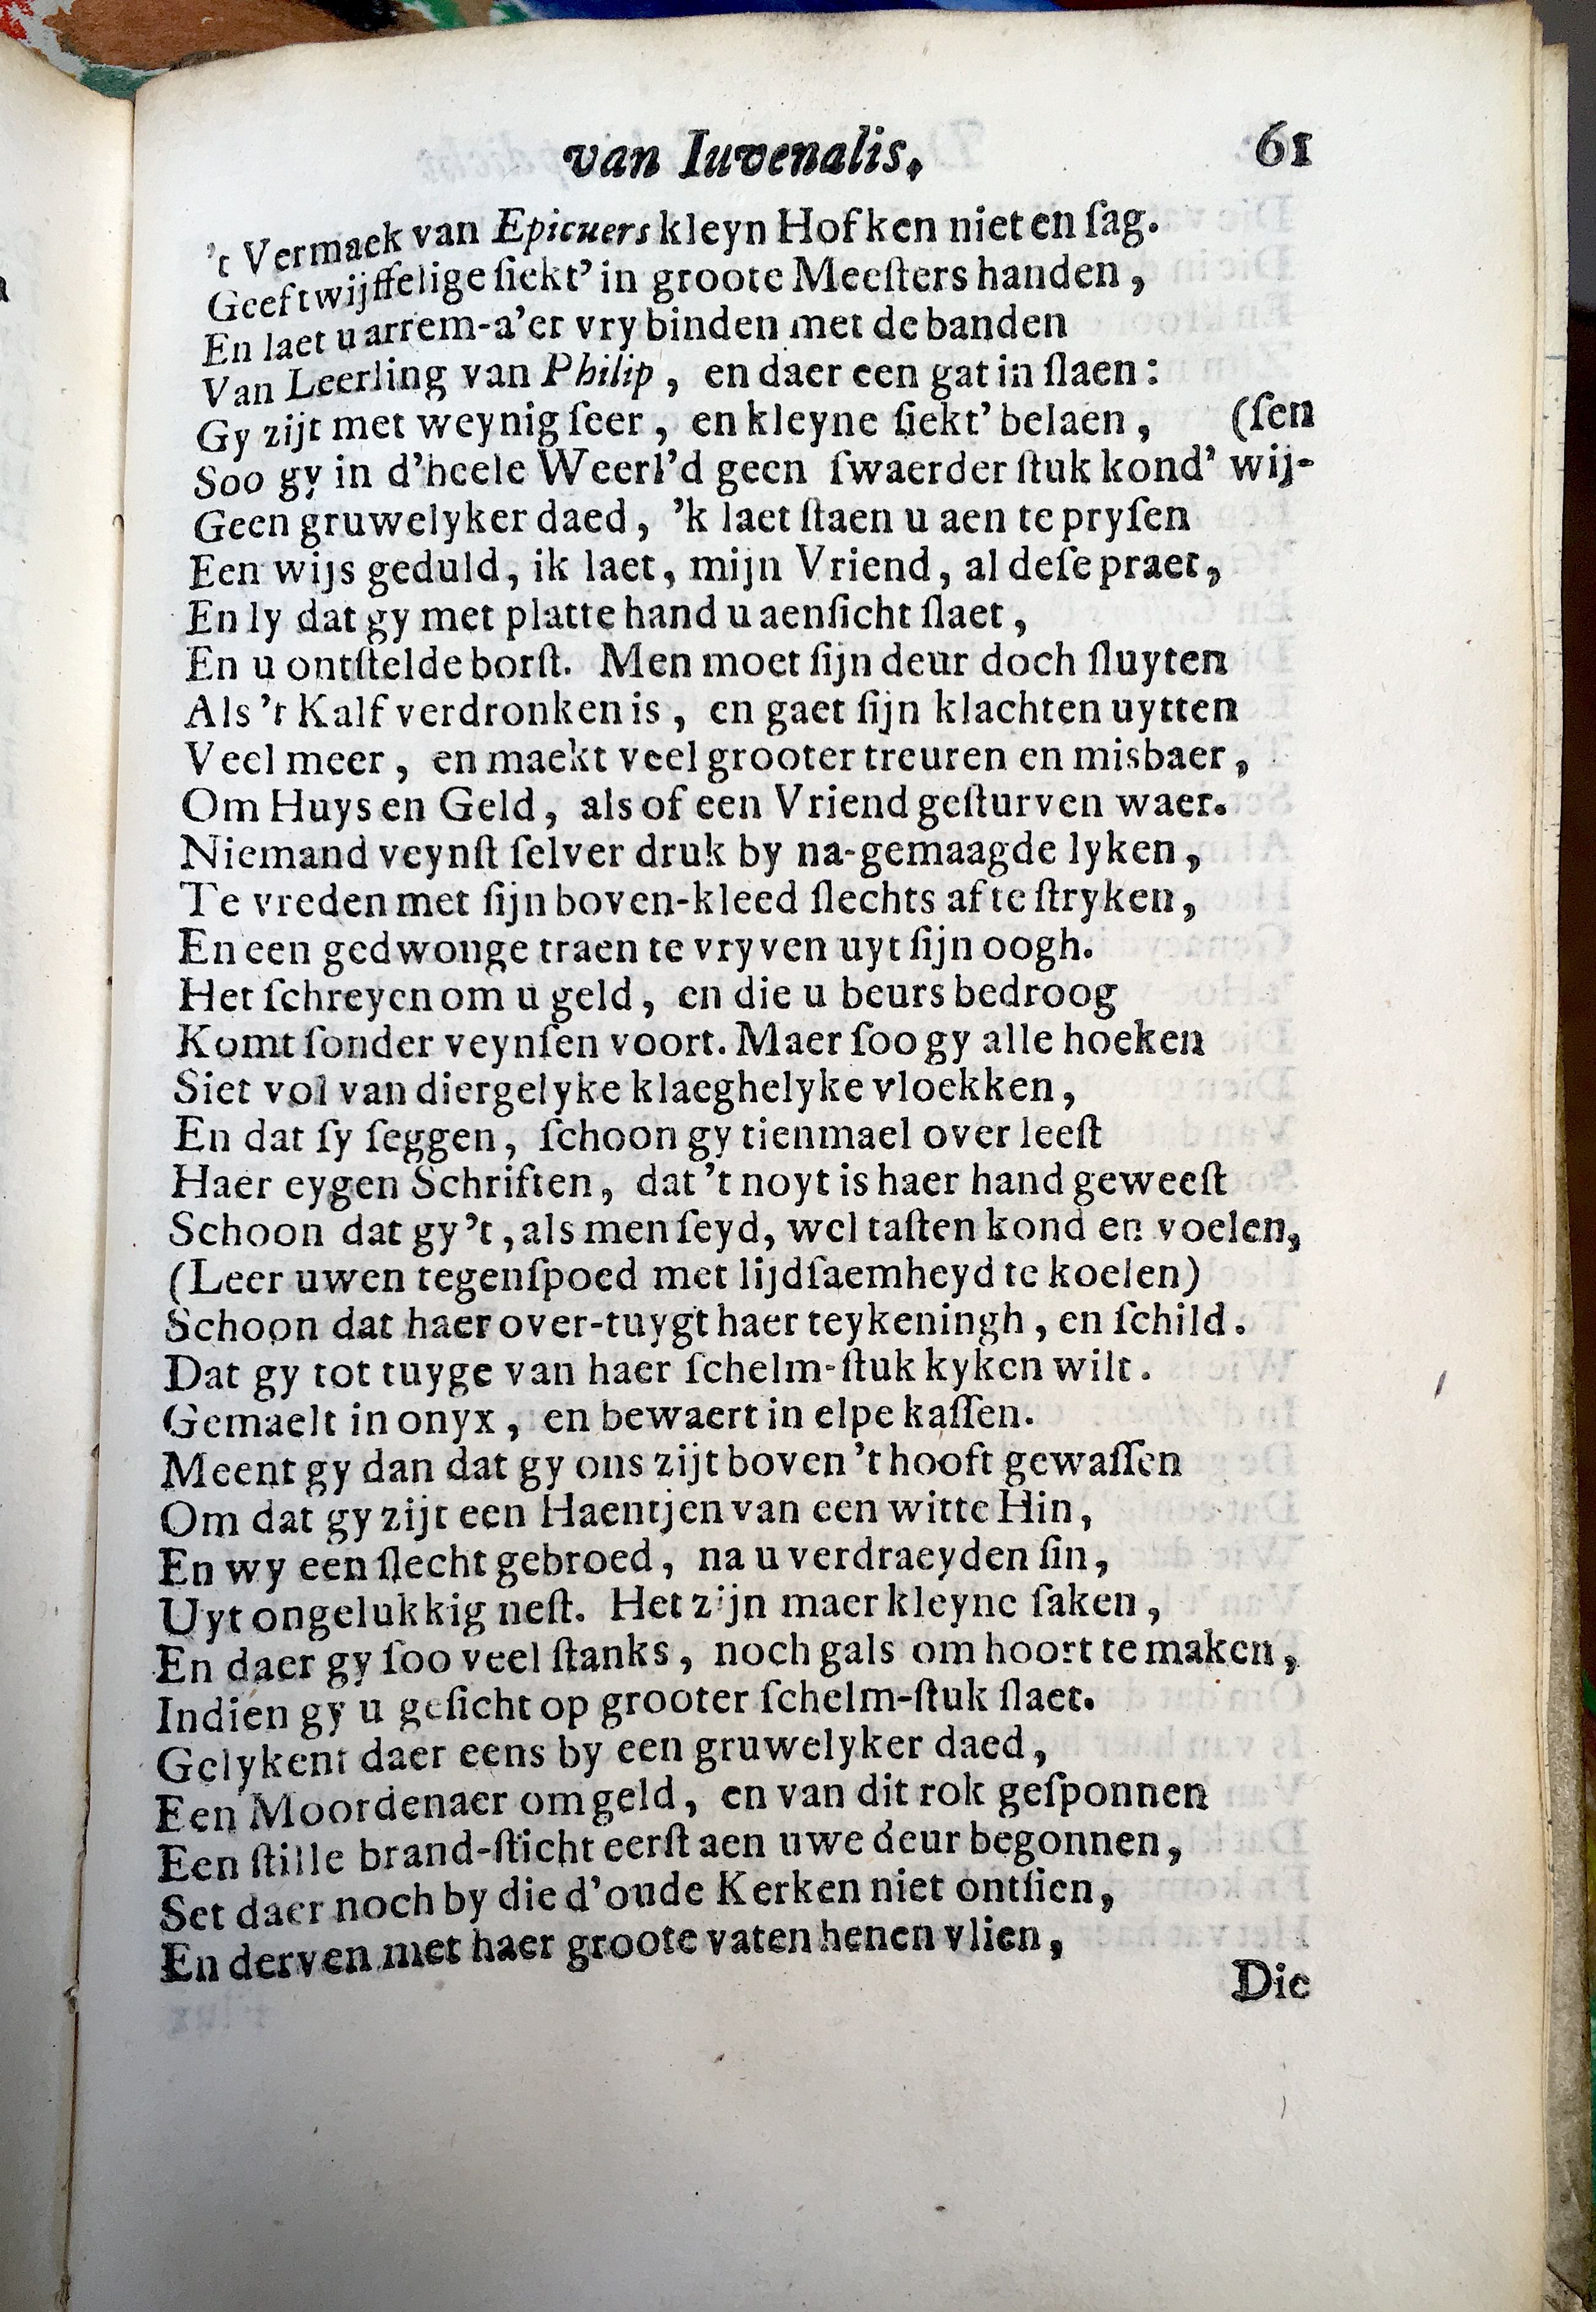 van Iuvenalis. 61
't Vermaek van Epicuers kleyn Hofken niet en ſag.
Geeft wijffelige ſiekt' in groote Meeſters handen,
En laet u arrem-a'er vry binden met de banden
Van Leerling van Philip, en daer een gat in ſlaen:
Gy zijt met weynig ſeer, en kleyne ſiekt' belaen, (ſen
Soo gy in d'heele Weerl'd geen ſwaerder ſtuk kond' wij-
Geen gruwelyker daed, 'k laet ſtaen u aen te pryſen
Een wijs geduld, ik laet, mijn Vriend, al deſe praet,
En ly dat gy met platte hand u aenſicht ſlaet,
En u ontſtelde borſt. Men moet ſijn deur doch ſluyten
Als 't Kalf verdronken is, en gaet ſijn klachten uytten
Veel meer, en maekt veel grooter treuren en misbaer,
Om Huys en Geld, als of een Vriend geſturven waer.
Niemand veynſt ſelver druk by na-gemaagde lyken,
Te vreden met ſijn boven-kleed ſlechts af te ſtryken,
En een gedwonge traen te vryven uyt ſijn oogh.
Het ſchreyen om u geld, en die u beurs bedroog
Komt ſonder veynſen voort. Maer ſoo gy alle hoeken
Siet vol van diergelyke klaeghelyke vloekken,
En dat ſy ſeggen, ſchoon gy tienmael over leeſt
Haer eygen Schriften, dat 't noyt is haer hand geweeſt
Schoon dat gy 't, als men ſeyd, wel taſten kond en voelen,
(Leer uwen tegenſpoed met lijdſaemheyd te koelen)
Schoon dat haer over-tuygt haer teykeningh, en ſchild.
Dat gy tot tuyge van haer ſchelm-ſtuk kyken wilt.
Gemaelt in onyx, en bewaert in elpe kaſſen.
Meent gy dan dat gy ons zijt boven 't hooft gewaſſen
Om dat gy zijt een Haentjen van een witte Hin,
En wy een ſlecht gebroed, na u verdraeyden ſin,
Uyt ongelukkig neſt. Het zijn maer kleyne ſaken,
En daer gy ſoo veel ſtanks, noch gals om hoort te maken,
Indien gy u geſicht op grooter ſchelm-ſtuk ſlaet.
Gelykent daer eens by een gruwelyker daed,
Een Moordenaer om geld, en van dit rok geſponnen
Een ſtille brand-ſticht eerſt aen uwe deur begonnen,
Set daer noch by die d'oude Kerken niet ontſien,
En derven met haer groote vaten henen vlien,
Die